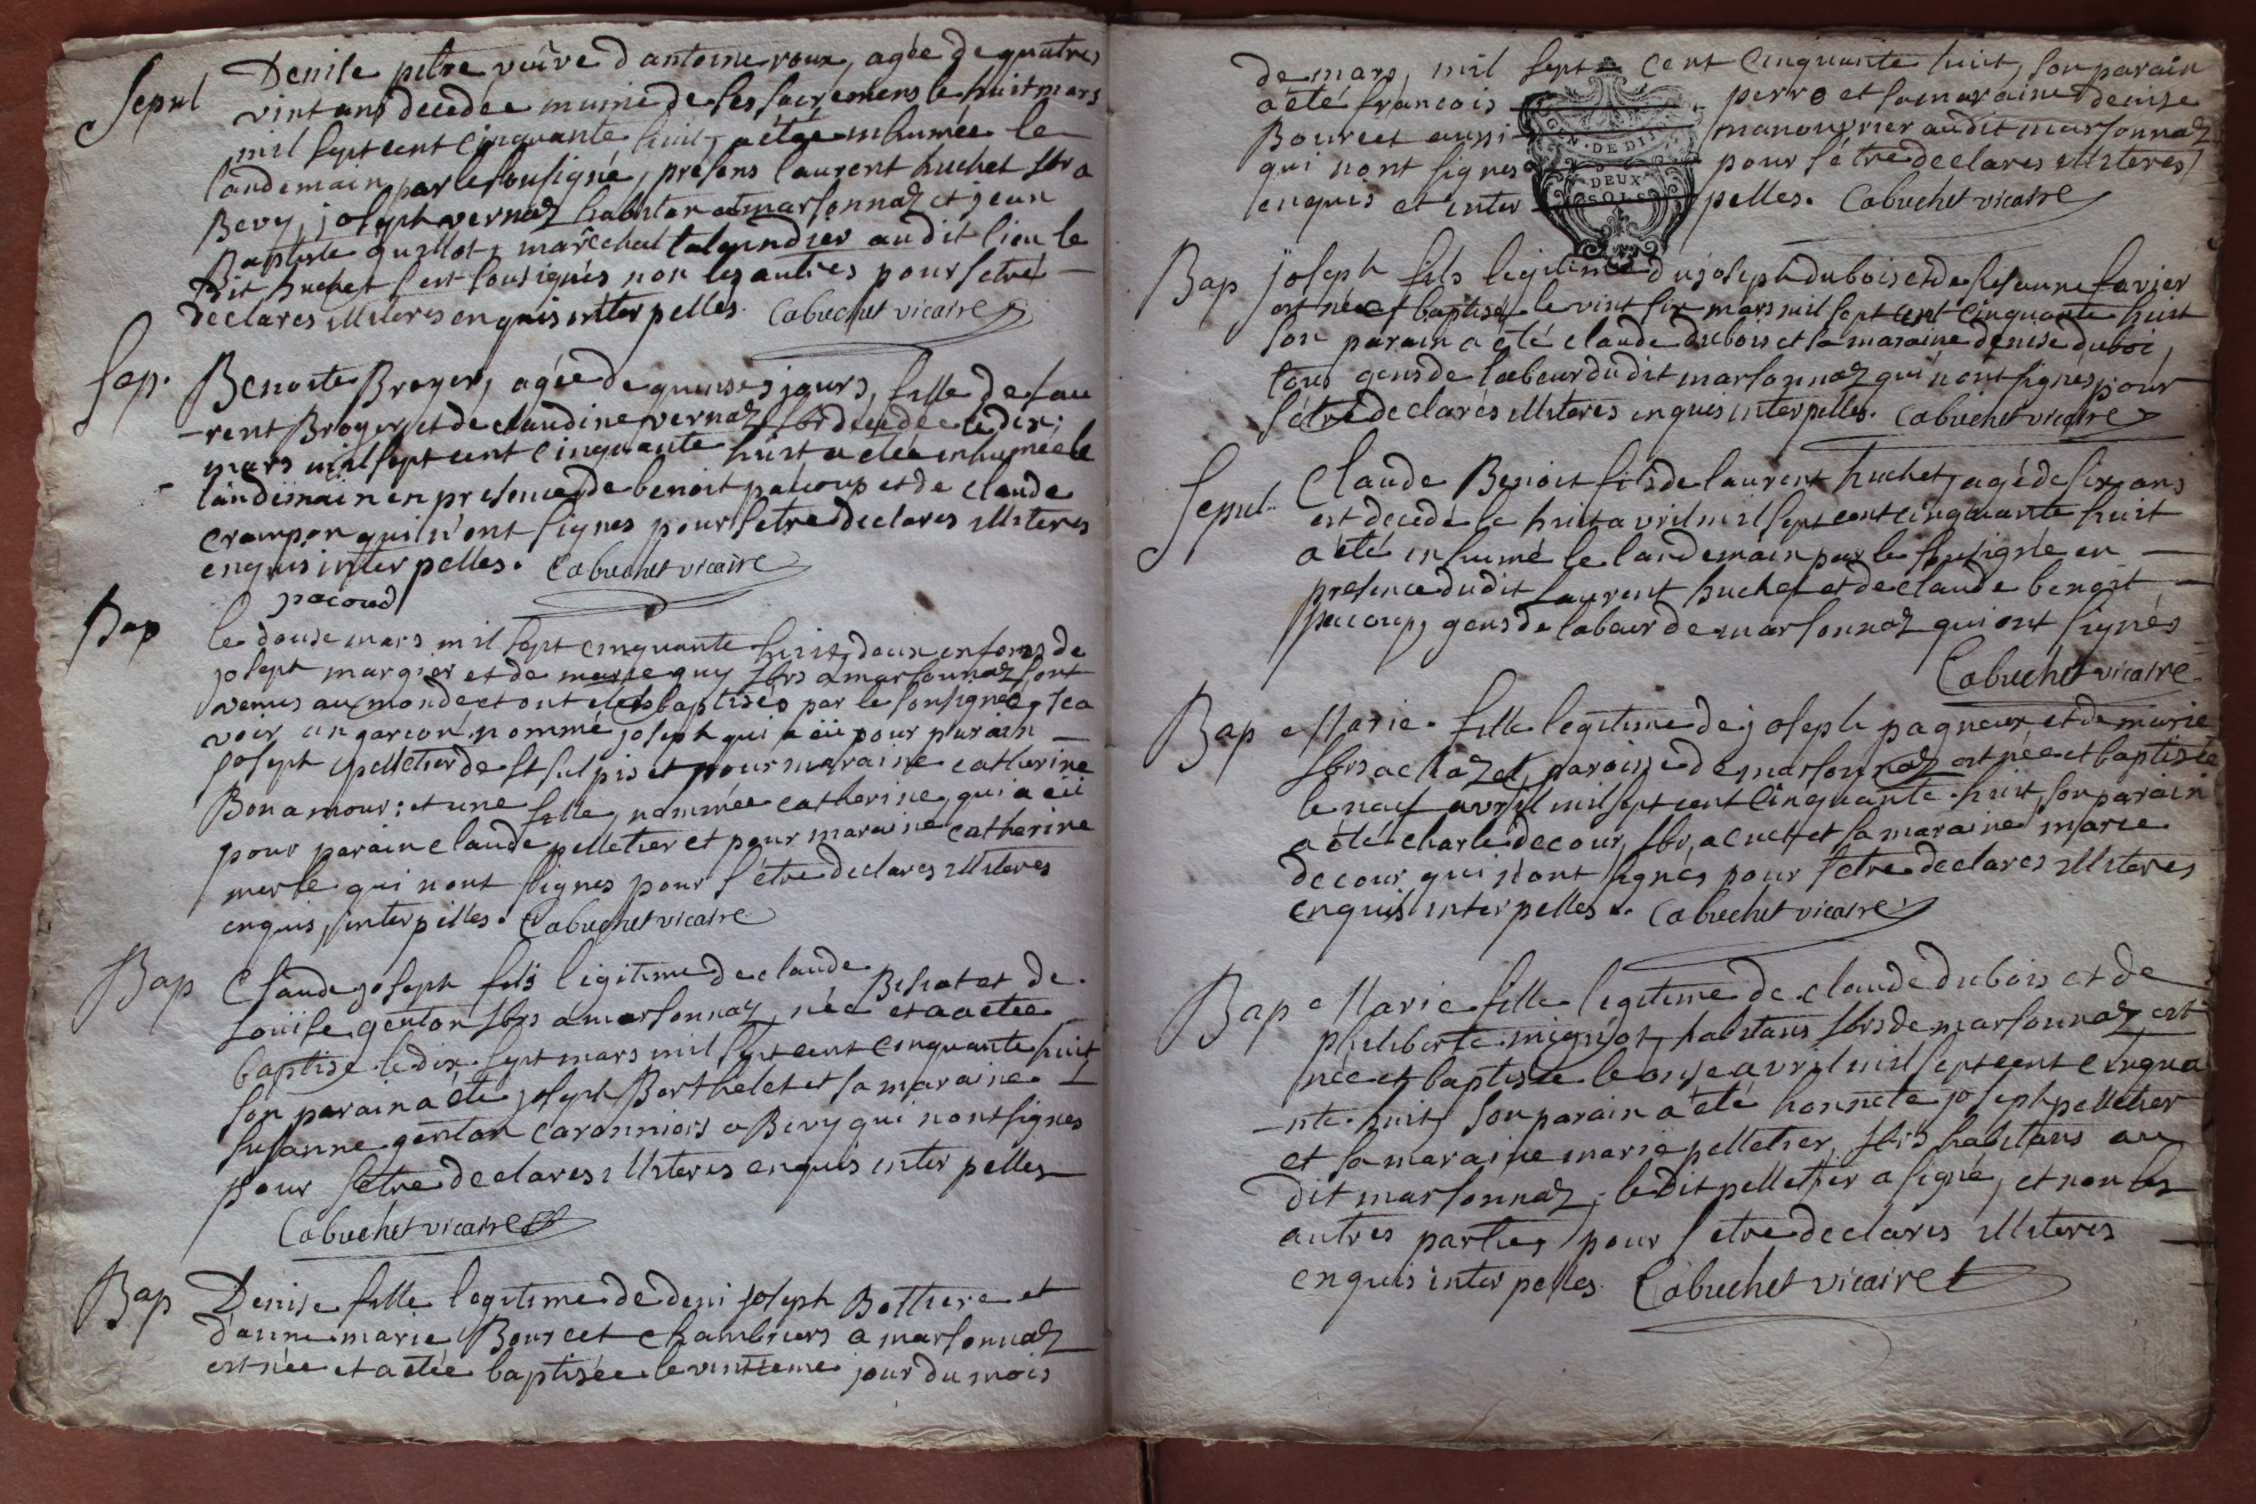 Sepul Denise petre veüve d'antoine roux, agée de quatres
vint ans decedée munie de ses sacremens le huit mars
mil sept cent cinquante huit, a etée inhumée le
landemain par le sousigné, presens laurent huchet
Bevy, joseph vernaz habitan a marsonnaz et jean
Baptiste guillot, marêchal audit lieu le
dit huchet s'est sousignés non les autres pour s'etre
declares illiteres enquis interpelles. Cabuchet vicaire
Sep. Benoite Broyer, agée de quinses jours, fille de lau
-rent Broyer et de claudine vernaz decedee le dix
mars mil sept cent cinquante huit a etée inhumée le
landemain en presence de benoit pacoup et de claude
crampon qui n'ont signes pour s'etre declares illiteres
enquis interpelles. Cabuchet vicaire
pacoud
Bap le douse mars mil sept cinquante huit, deux enfans de
josept margier et de marie guy a marsonnaz sont
venus au monde et ont etes baptisés par le sousigné, sca
voir un garcon nommé joseph qui a eü pour parain
joseph pelletier de st sulpis et pour maraine catherine
Bonamour: et une fille, nommée catherine, qui a eü
pour parain claude pelletier et pour maraine catherine
merle qui n'ont signes pour s'etre declares illiteres
enquis, interpelles. Cabuchet vicaire
Bap Claude joseph fils legitime de claude Bichat et de
loüise genton a marsonnaz, née et a etée
baptise le dix sept mars mil sept cent cinquante huit
son parain a été joseph Barthelet et sa maraine
susanne genton caronniers a Bevy qui n'ont signes
pour s'etre declares illiteres enquis interpelles
Cabuchet vicaire
Bap Denise fille legitime de deni joseph Bottiere et
d'anne marie Bourcet chambriers a marsonnaz
est née et a etée baptisée le vintieme jour du mois
de mars, mil sept cent cinquante huit, son parain
a été francois perro et sa maraine denise
Bourcet aussi manouvrier audit marsonnaz
qui n'ont signes pour s'être declares illiteres
enquis et interpelles. Cabuchet vicaire
GEN · DE DI
DEUX
SOLS
Bap joseph fils legitime du joseph dubois et de susanne favier
est née et baptisé le vint six mars mil sept cent cinquante huit
son parain a été claude dubois et sa maraine denise duboi,
tous gens de labeur dudit marsonnaz qui n'ont signes pour
s'être declarés illiteres enquis interpelles. Cabuchet vicaire
Sepul. Claude Benoit fils de laurent huchet, agé de six ans
est decedé le huit avril mil sept cent cinquante huit
a été inhumé le landemain par le sousigné en
presence dudit laurent huchet et de claude benoit
pacoup, gens de labeur de marsonnaz qui ont signés
Cabuchet vicaire
Bap Marie fille legitime de joseph pagneux et de marie
a chazel, paroisse de marsonnaz est née et baptisée
le neuf avril mil sept cent cinquante huit, son parain
a été charle decour, a cuet et sa maraine marie
decour qui n'ont signés pour s'etre declares illiteres
enquis interpelles. Cabuchet vicaire
Bap Marie fille legitime de claude dubois et de
philiberte mignot, habitans de marsonnaz, est
née et baptisée le onse avril mil sept cent cinqua
-nte huit son parain a été honnete joseph pelletier
et sa maraine marie pelletier, habitans au
dit marsonnaz, le dit pelletier a signé, et non les
autres parties pour s'etre declarés illiteres
enquis interpelles. Cabuchet vicaire